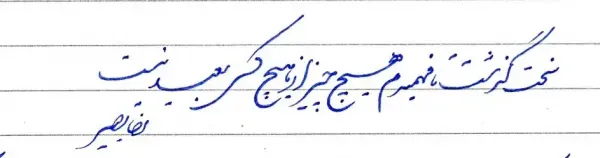 سخت گذشت تا فهمیدم هیچ چیز از هیچ کس بعید نیست